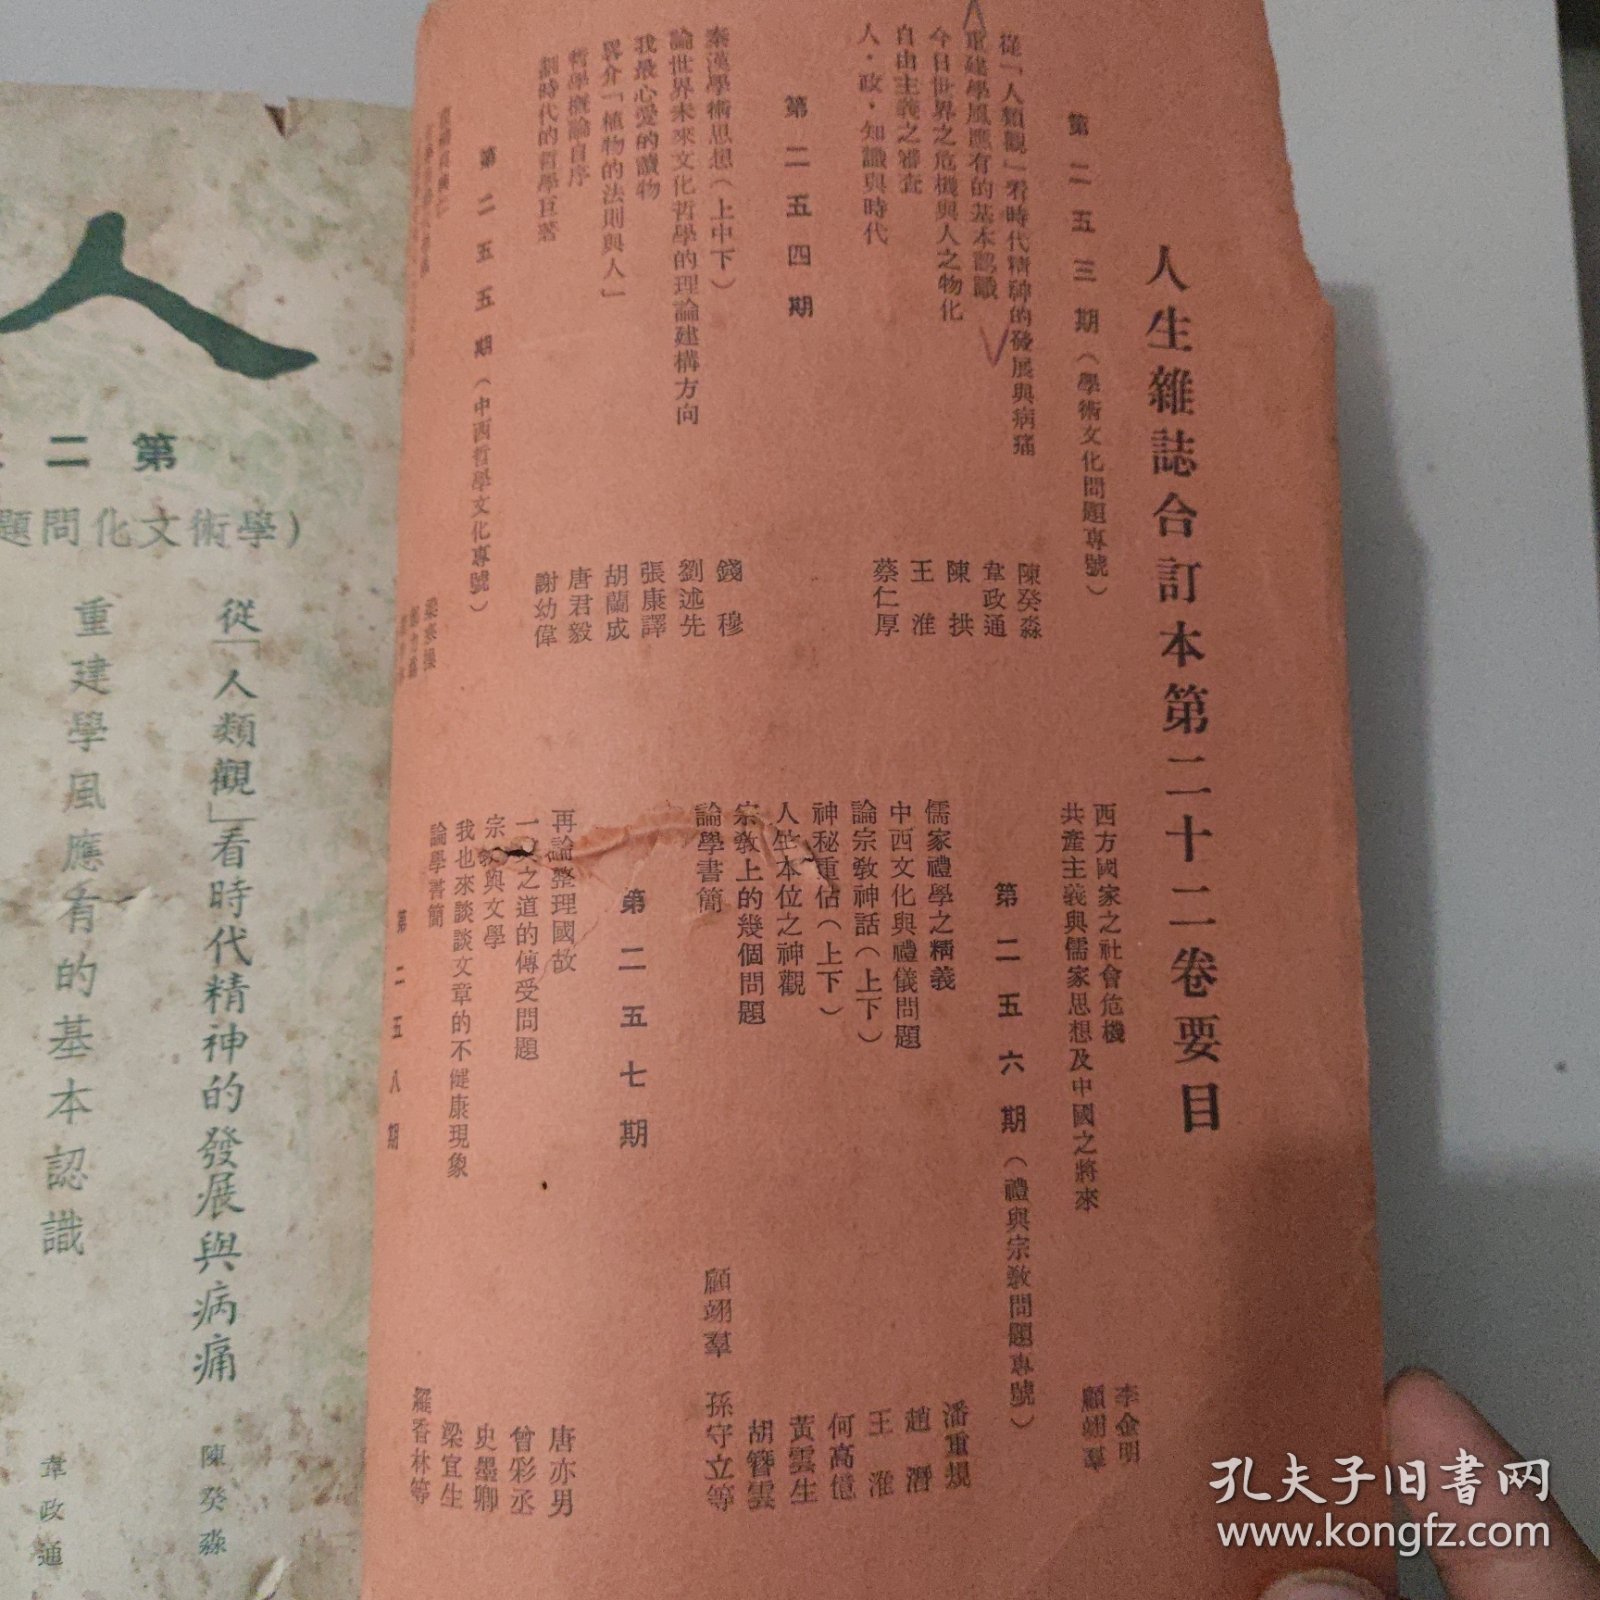 人生雜誌合訂本第二十二卷要目
第二五三期（學術文化問題專號）
從「人類觀」看時代精神的發展與病痛 陳癸淼
重建學風應有的基本認識 韋政通
今日世界之危機與人之物化 陳拱
自由主義之審查 王淮
人・政・知識與時代 蔡仁厚
第二五四期
秦漢學術思想（上中下） 錢穆
論世界未來文化哲學的理論建構方向 劉述先
我最心愛的讀物 張康譯
畧介「植物的法則與人」 胡蘭成
哲學概論自序 唐君毅
劃時代的哲學巨著 謝幼偉
第二五五期（中西哲學文化專號）
西方國家之社會危機 李金明
共產主義與儒家思想及中國之將來 顧翊羣
第二五六期（禮與宗教問題專號）
儒家禮學之精義 潘重規
中西文化與禮儀問題 趙潛
論宗教神話（上下） 王淮
神秘重估（上下） 何高億
人生本位之神觀 黃雲生
宗教上的幾個問題 胡簪雲
論學書簡 顧翊羣 孫守立等
第二五七期
再論整理國故 唐亦男
一貫之道的傳受問題 曾彩丞
宗教與文學 史墨卿
我也來談談文章的不健康現象 梁宜生
論學書簡 羅香林等
第二五八期
人
第二
（學術文化問題
從「人類觀」看時代精神的發展與病痛 陳癸淼
重建學風應有的基本認識 韋政通
孔夫子旧书网
www.kongfz.com